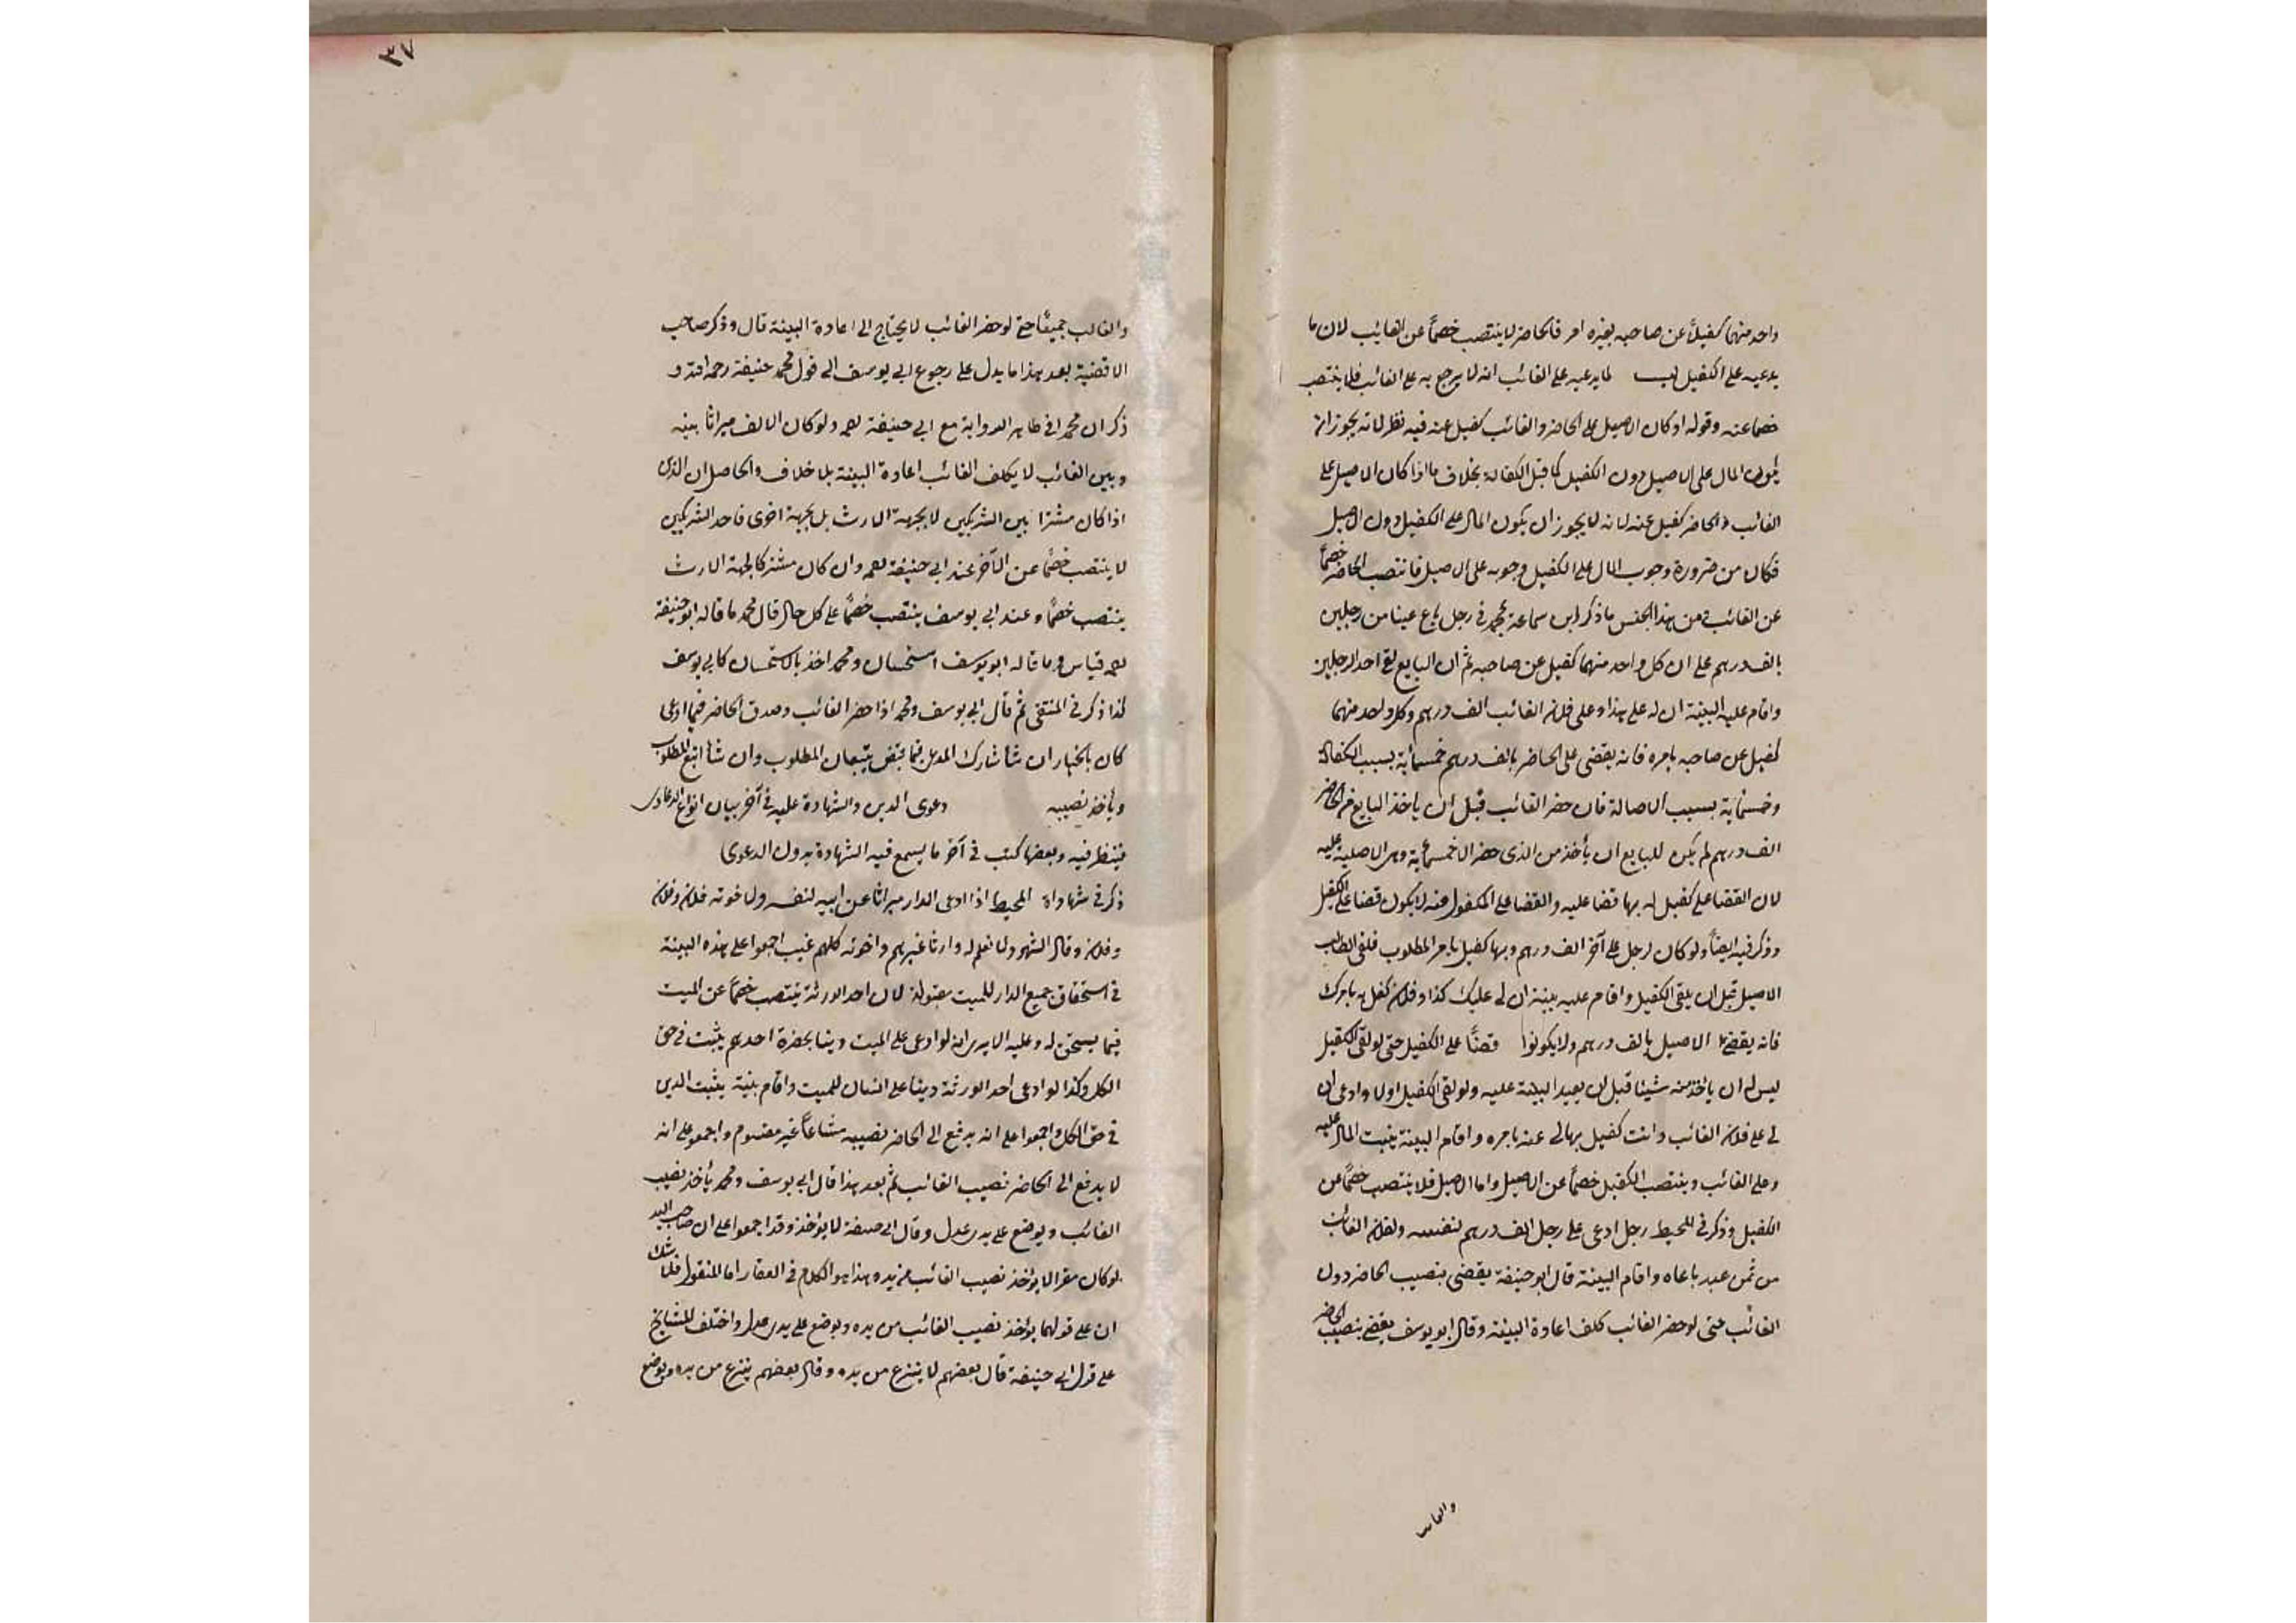 واحد منهما كفيلا عن صاحبه بغيره امر فالحاضر لا ينتصب خصماً عن الغايب لان ما
يدعيه على الكفيل ليس لما يدعيه على الغائب انه لا يرجع به على الغائب فلا ينتصب
خصما عنه وقوله او كان الاصيل على الحاضر والغائب كفيل عنه فيه نظر لانه يجوز ان
المال على الاصيل دون الكفيل كما قبل الكفالة بخلاف ما اذا كان الاصيل على
الغائب والحاضر كفيل عنه لانه لا يجوز ان يكون المال على الكفيل دون الاصيل
فكان من ضرورة وجوب المال على الكفيل وجوبه على الاصيل فانتصب الحاضر خصماً
عن الغائب ومن هذا الجنس ما ذكر ابن سماعة محمد في رجل باع عينا من رجلين
بالف درهم على ان كل واحد منهما كفيل عن صاحبه ثم ان البايع لقي احد الرجلين
واقام عليه البينة ان له على هذا وعلى فلان الغائب الف درهم وكل واحد منهما
كفيل عن صاحبه بامره فانه يقضى على الحاضر بالف درهم خمسمائة بسبب الكفالة
وخمسمائة بسبب الاصالة فان حضر الغائب قبل ان ياخذ البايع من الحاضر
الف درهم لم يكن للبايع ان يأخذ من الذى حضر الا خمسمائة وهى الاصلية عليه
لان القضا على كفيل له بها قضا عليه والقضا على المكفول عنه لا يكون قضا على الكفيل
وذكر فيه ايضاً ولو كان لرجل على آخر الف درهم وبها كفيل بامر المطلوب فلقى الطالب
الاصيل قبل ان يلقى الكفيل واقام عليه بينة ان لى عليك كذا وفلان كفل به بامرك
فانه يقضى على الاصيل بالف درهم ولا يكون قضاً على الكفيل حتى لو لقى الكفيل
ليس له ان ياخذ منه شيئا قبل ان يعيد البينة عليه ولو لقى الكفيل اولا وادعى ان
لى على فلان الغائب وانت كفيل بها لى عنه بامره واقام البينة يثبت المال عليه
وعلى الغائب وينتصب الكفيل خصماً عن الاصيل واما الاصيل فلا ينتصب خصماً عن
الكفيل وذكر في المحيط رجل ادعى على رجل الف درهم لنفسه ولفلان الغائب
من ثمن عبد باعاه واقام البينة قال ابو حنيفة يقضى بنصيب الحاضر دون
الغائب حتى لو حضر الغائب كلف اعادة البينة وقال ابو يوسف يقضى بنصيب الحاضر
والغائب
٣٧
والغائب جميعًا حتى لو حضر الغائب لا يحتاج الى اعادة البينة قال وذكر صاحب
الاقضية بعد هذا ما يدل على رجوع ابى يوسف الى قول محمد حنيفة رحمه الله و
ذكر ان محمدا في ظاهر الرواية مع ابى حنيفة ولو كان الالف ميراثا بينه
وبين الغائب لا يكلف الغائب اعادة البينة بلا خلاف والحاصل ان الذى
اذا كان مشترا بين الشريكين لا بجهة الارث بل بجهة اخرى فاحد الشريكين
لا ينتصب خصماً عن الآخر عند ابى حنيفة وان كان مشتركا لجهة الارث
ينتصب خصماً وعند ابى يوسف ينتصب خصماً على كل حال قال محمد ما قاله ابو حنيفة
قياس وما قاله ابو يوسف استحسان ومحمد اخذ بالاستحسان كابى يوسف
كذا ذكر في المنتقى ثم قال ابى يوسف ومحمد اذا حضر الغائب وصدق الحاضر فيما ادعى
كان بالخيار ان شأ شارك المدعى فيما يقبض يتبعان المطلوب وان شأ اتبع المطلوب
ويأخذ نصيبه دعوى الدين والشهادة عليه في آخر بيان انواع الدعاوى
فينظر فيه وبعضها كتب في آخر ما يسمع فيه الشهادة بدون الدعوى
ذكر في شهاداة المحيط اذا ادعى الدار ميراثا عن ابيه لنفسه ولاخوته فلان وفلان
وفلان وقال الشهود لا نعلم له وارثا غيرهم واخوته كلهم غيب اجمعوا على هذه البينة
في استحقاق جميع الدار للميت مقبولة لان احد الورثة ينتصب خصماً عن الميت
فيما يستحق له وعليه الا يرى انه لو ادعى على الميت دينا بحضرة احدهم يثبت في حق
الكل وكذا لو ادعى احد الورثة دينا على انسان للميت واقام بينة يثبت الدين
في حق الكل واجمعوا على انه يدفع الى الحاضر نصيبه مشاعاً غير مقسوم واجمعو على انه
لا يدفع الى الحاضر نصيب الغائب ثم بعد هذا قال ابى يوسف ومحمد يأخذ نصيب
الغائب ويوضع على يدى عدل وقال ابى حنيفة لا يؤخذ وقد اجمعوا على ان صاحب اليد
لو كان مقرا لا يؤخذ نصيب الغائب من يده وهذا هو الكلام في العقار اما المنقول فلا شك
ان على قولهما يؤخذ نصيب الغائب من يده ويوضع على يدى عدل واختلف المشايخ
على قول ابى حنيفة قال بعضهم لا ينزع من يده وقال بعضهم ينزع من يده ويوضع